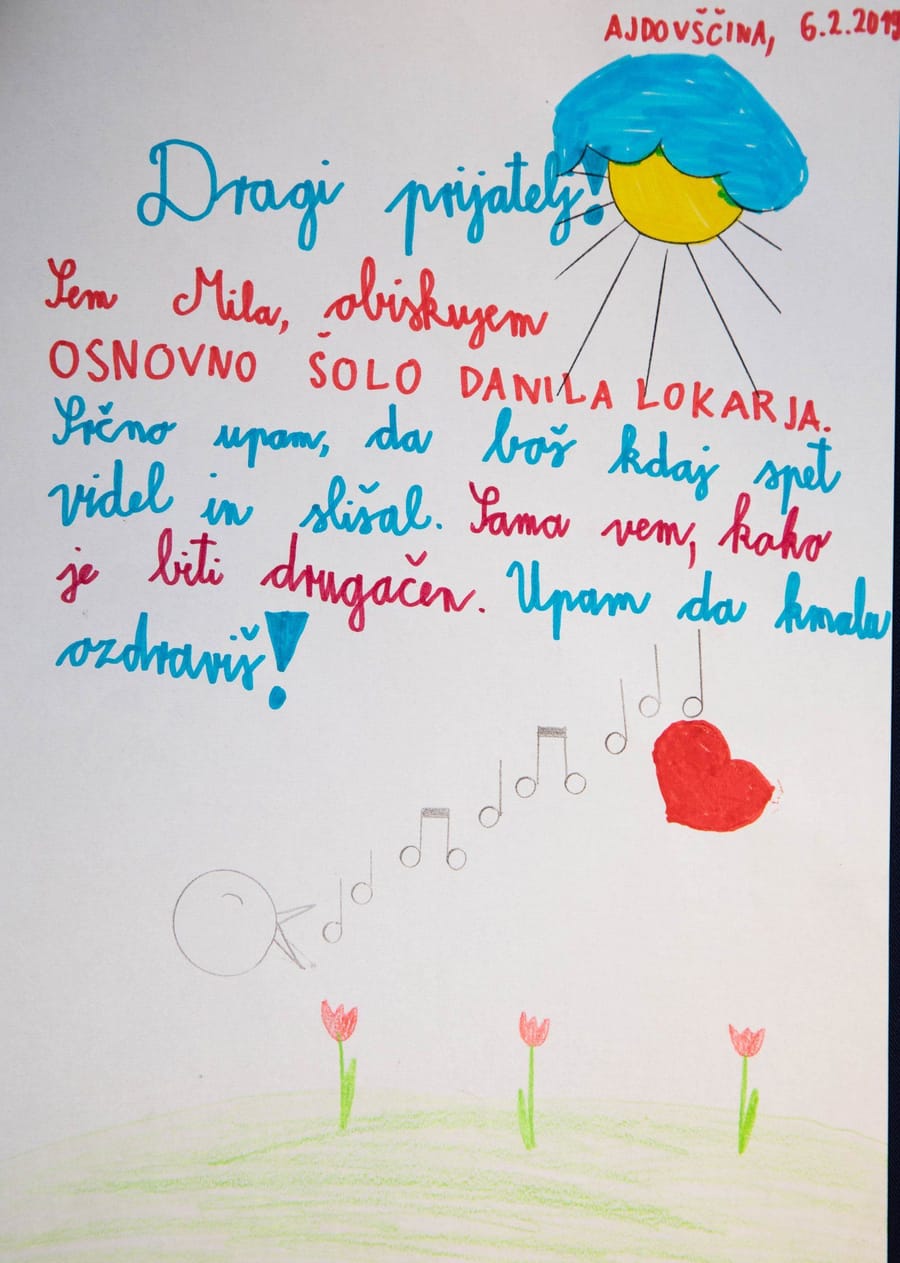 AJDOVŠČINA, 6.2.2019
Dragi prijatelj!
Sem Mila, obiskujem
OSNOVNO ŠOLO DANILA LOKARJA.
Srčno upam, da boš kdaj spet
videl in slišal. Sama vem, kako
je biti drugačen. Upam da kmalu
ozdraviš!